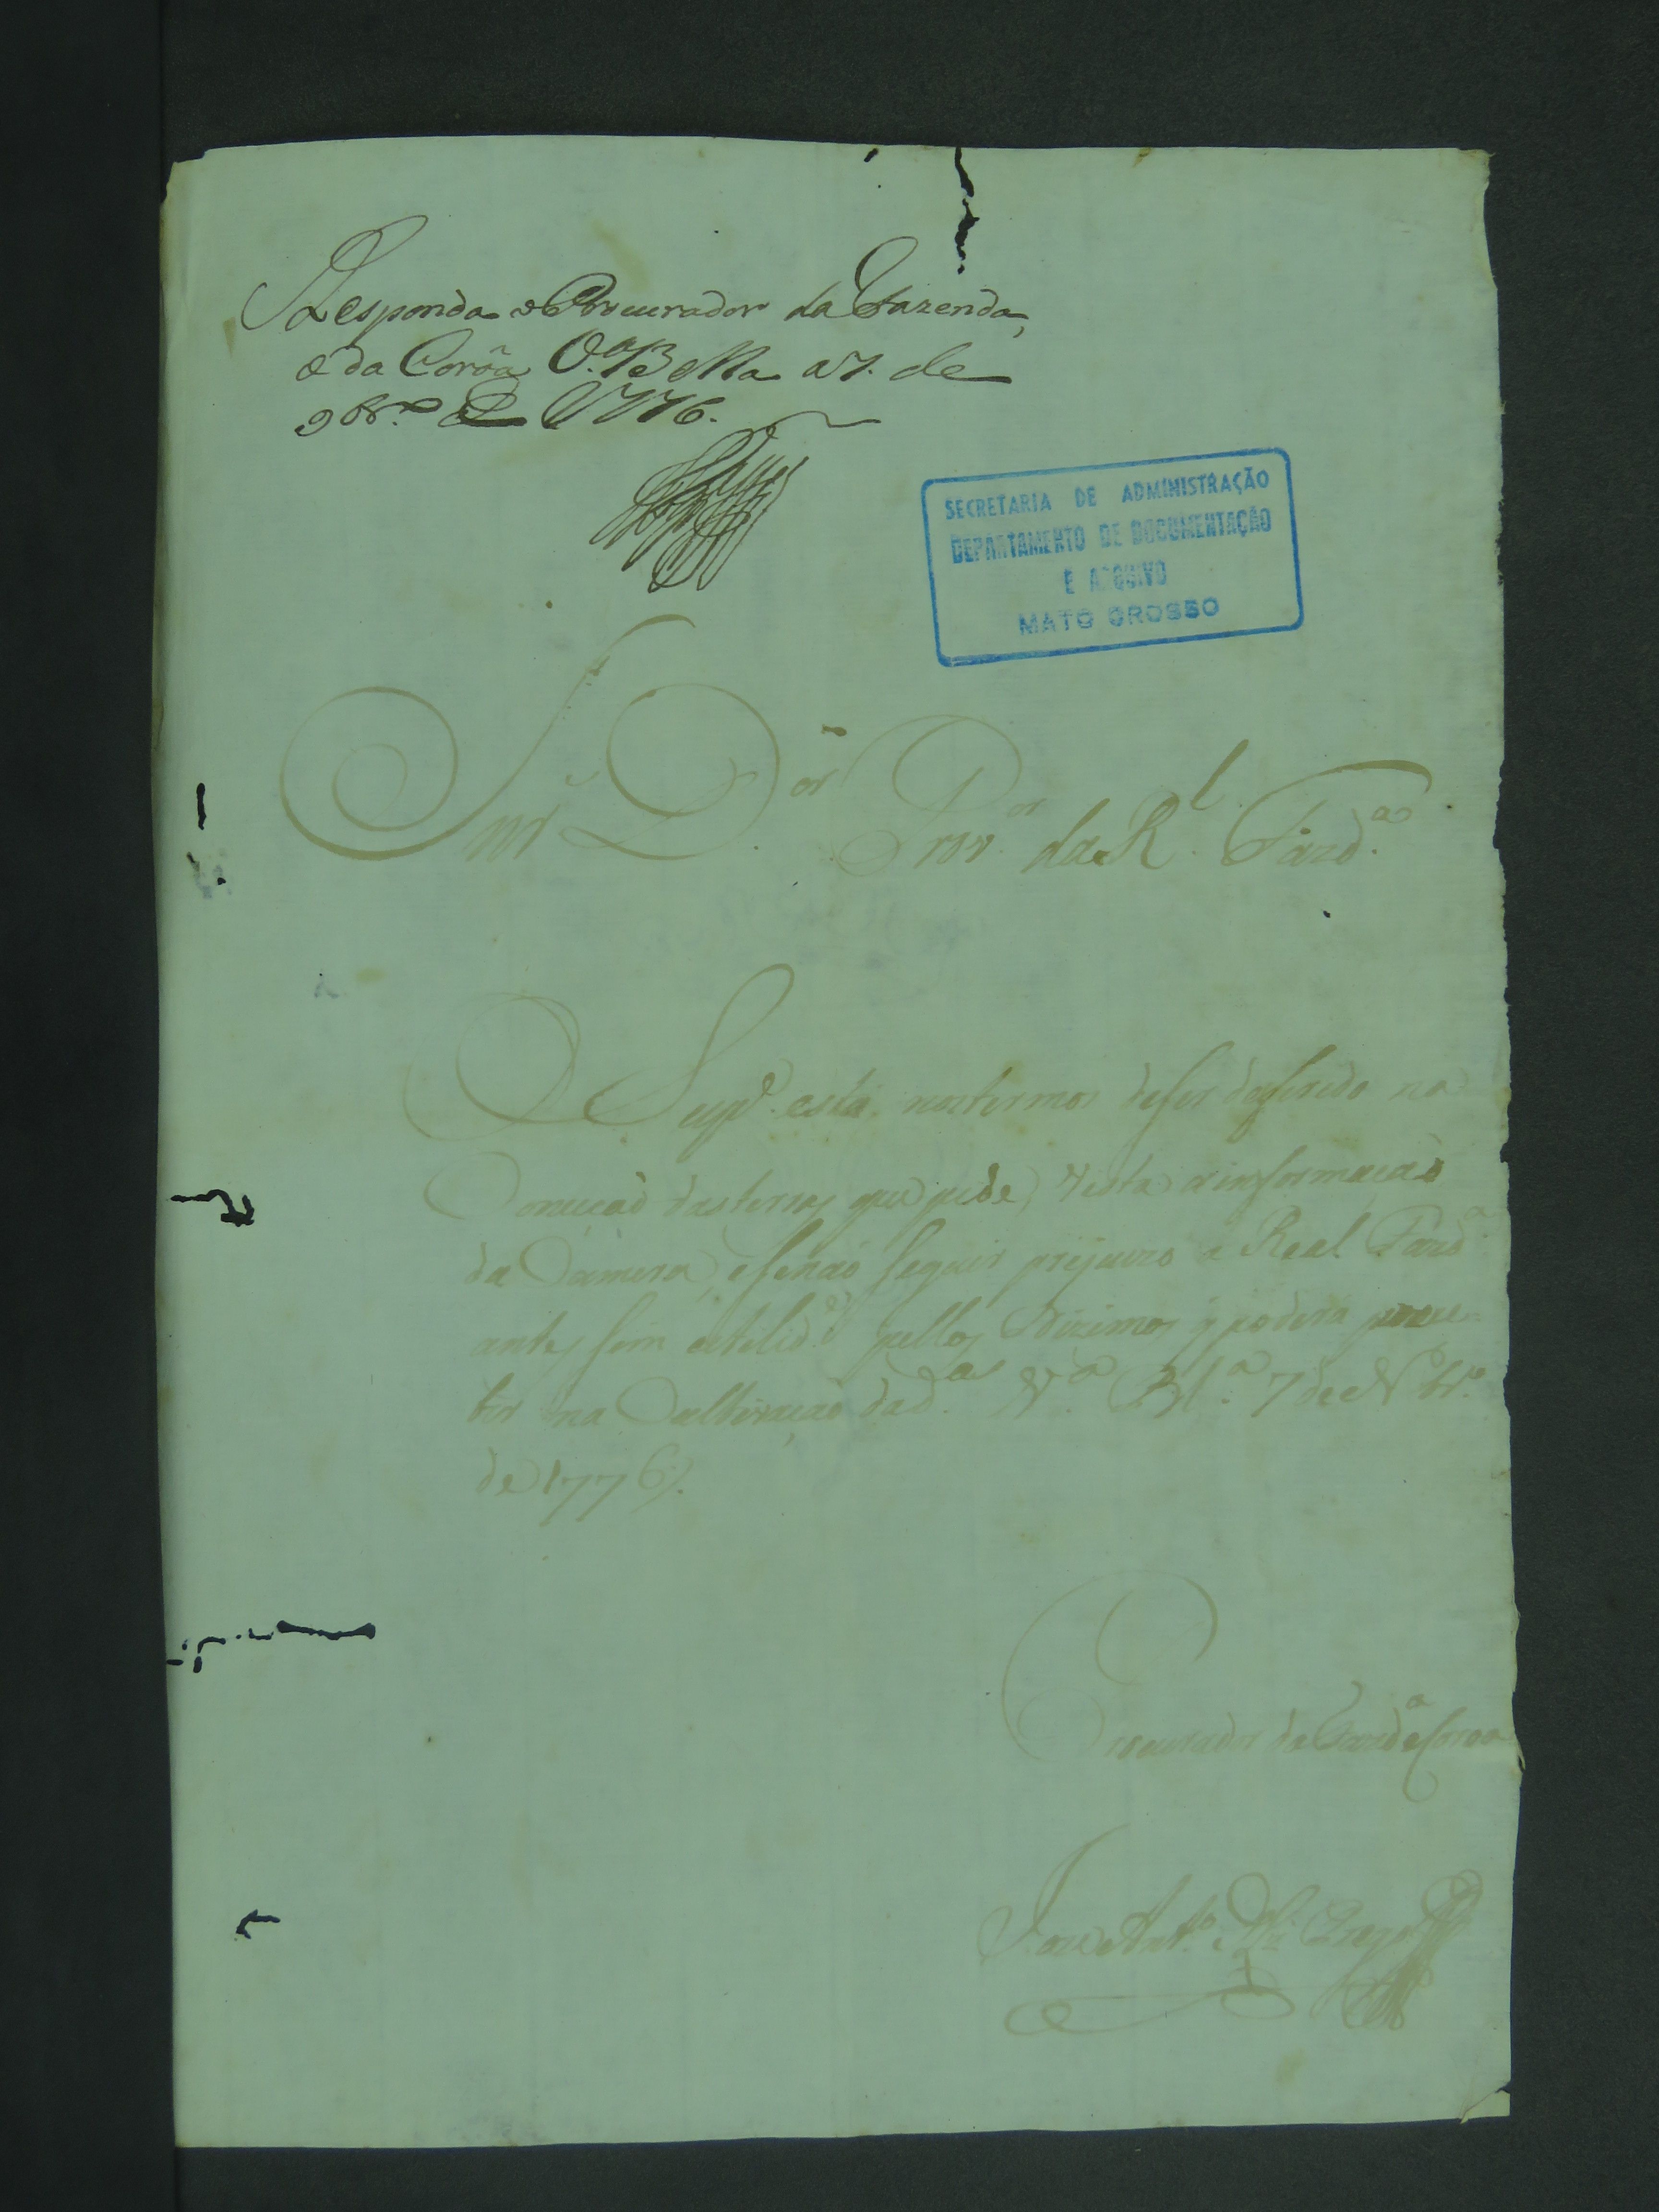 Responda o Procurador da Fazenda,
e da Corôa V.ª Bella a 7. de
9br.º de 1776.
SECRETARIA DE ADMINISTRAÇÃO
DEPARTAMENTO DE DOCUMENTAÇÃO
E ARQUIVO
MATO GROSSO
Snr̃ D.or Prov.or da R.l Fazd.ª
O Sup.e está nos termos de ser deferido na
Concição das terras que pede, vista a informação
da Camera, e senão seguir prejuizo a Real Fazd.ª
antes sim utelid.e pellos Dizimos q̃ podera
na Cultivação da d.ª V.ª B.ª 7 de Nbr.º
de 1776.
Procurador da Fazd.ª e Coroa
Joze Ant.º